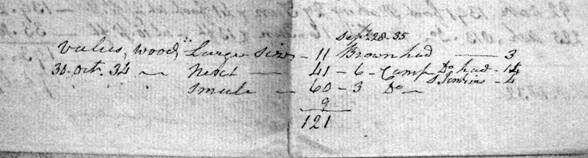 Sept. 28. 35
Values, wood, Large size - 11 Brown had — 3
30. Oct. 34 — Next — 41 - 6 - Camp Do had - 1
Smale — 60 - 3 Do —
9
121